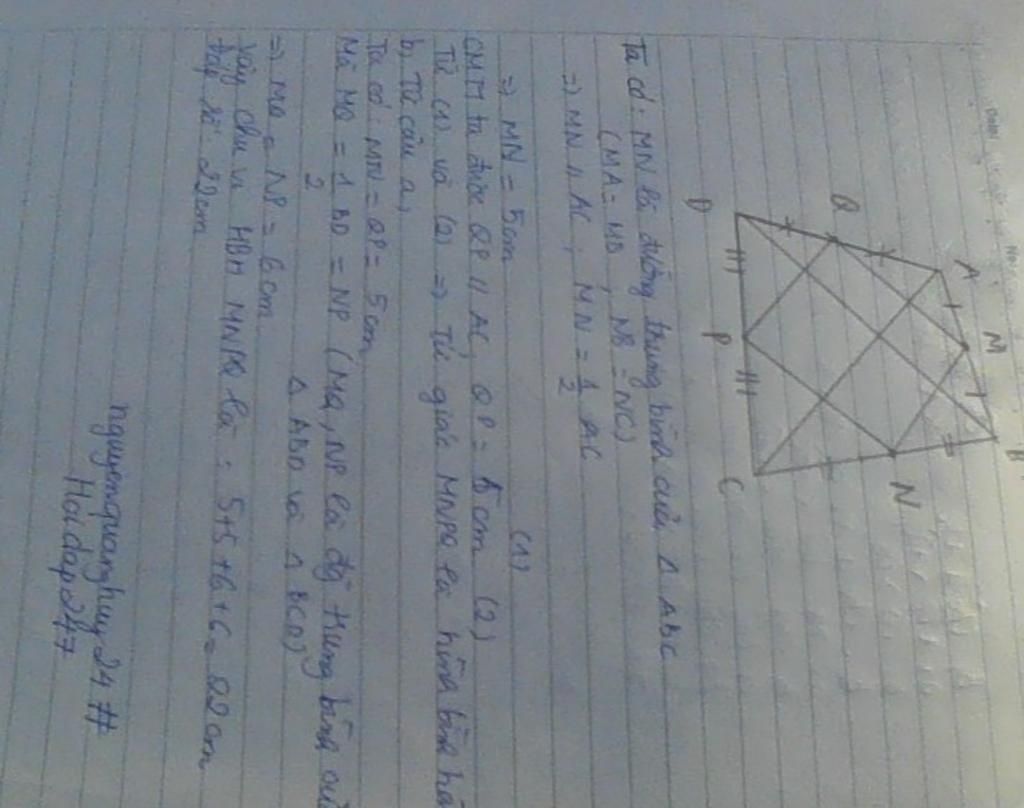 A
M
B
Q
N
D
P
C
Ta có: MN là đường trung bình của Δ ABC
(MA = MB, NB = NC)
=> MN // AC; MN = 1/2 AC
=> MN = 5cm (1)
CMTT ta được QP // AC, QP = 5cm (2)
Từ (1) và (2) => Tứ giác MNPQ là hình bình hà
b, Từ câu a,
Ta có: MN = QP = 5cm
Mà MQ = 1/2 BD = NP (MQ, NP là đg trung bình củ
Δ ABD và Δ BCD)
=> MQ = NP = 6cm
Vậy chu vi HBH MNPQ là: 5+5+6+6 = 22cm
Đáp số 22cm
nguyenquanghuy24 #
Hoidap247